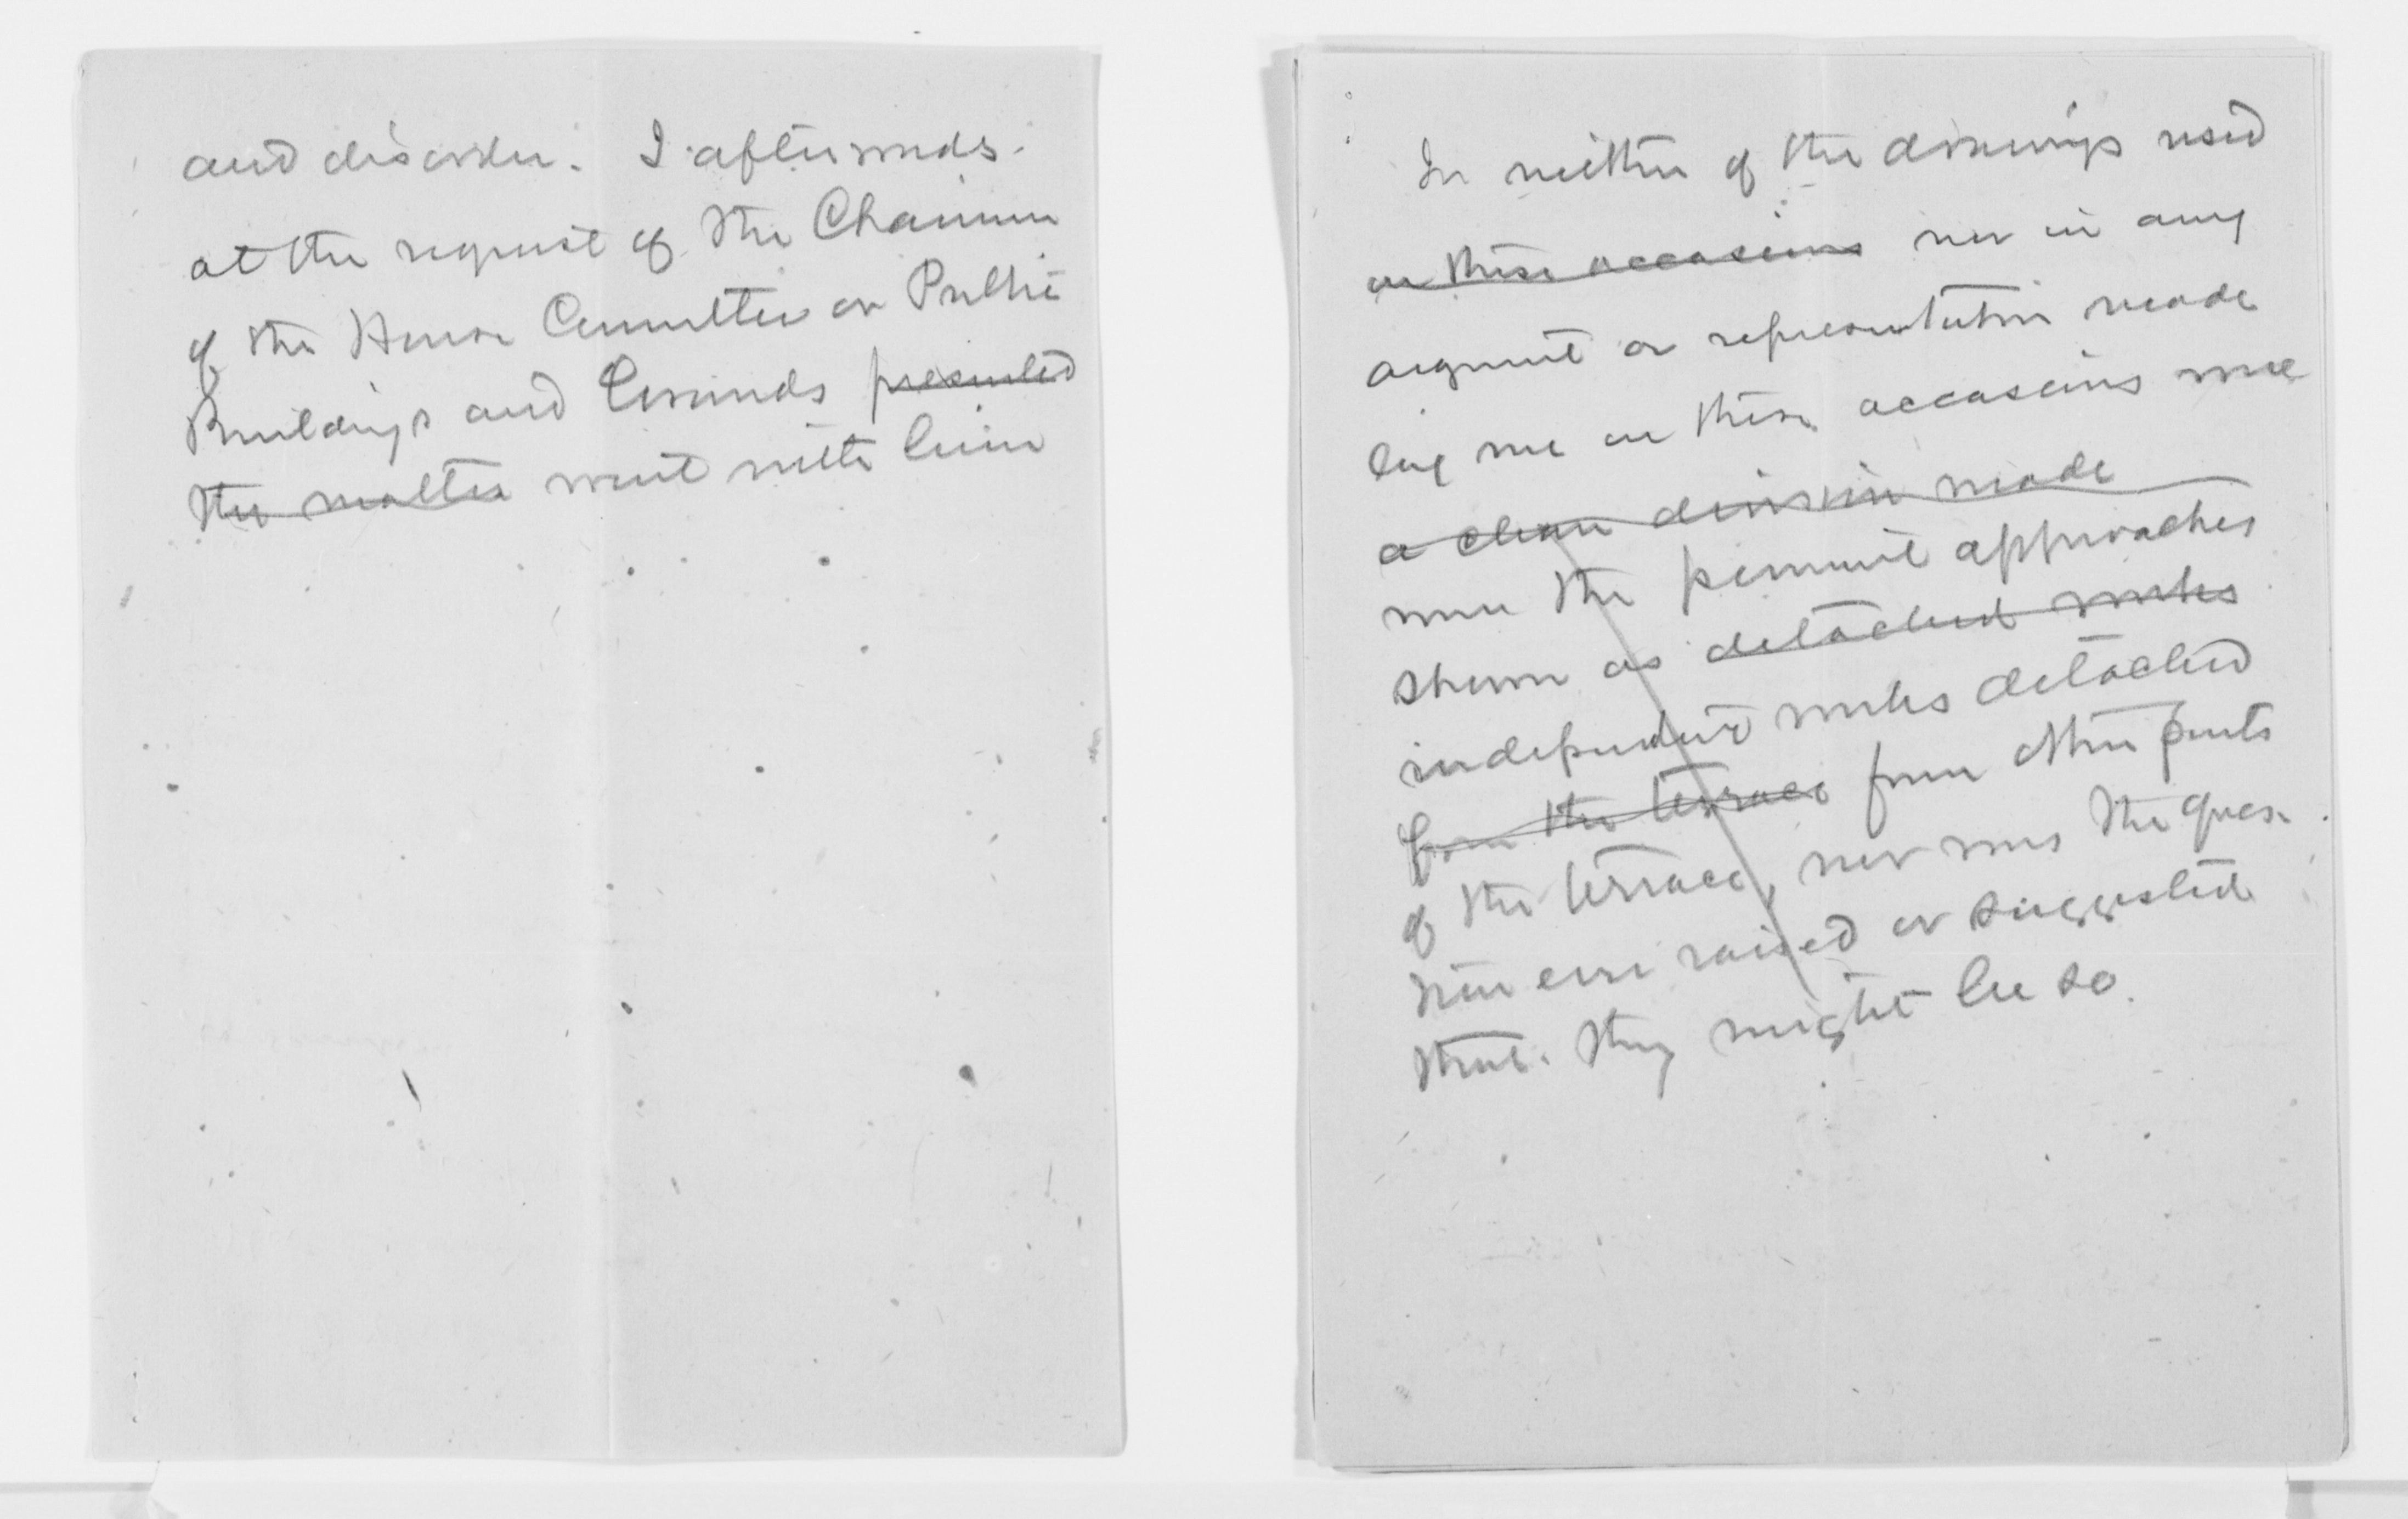 and disorder. I afterwards
at the request of the Chairman
of the House Committee on Public
Buildings and Grounds presented
the matter went with him
In neither of the drawings used
on these occasions nor in any
argument or representation made
by me on these occasions were
a clean division made
were the permanent approaches
shown as detached works
independent works detached
from the terrace from other parts
of the terrace, nor was the ques-
tion ever raised or suggested
that they might be so.